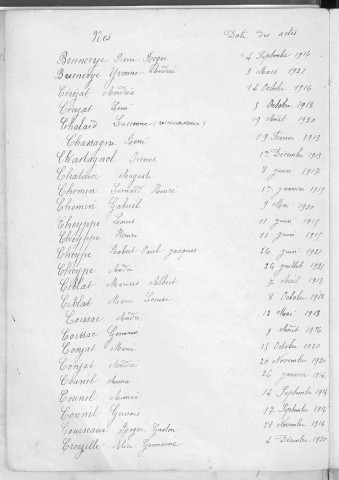 Nés Date des actes
Brunerye Pierre Roger 4 Septembre 1914
Brunerye Yvonne Andrée 3 Mars 1921
Cérézat Andréa 14 Octobre 1914
Couzat René 5 Octobre 1918
Chalard Lucienne (reconnaissance) 19 Août 1920
Chassagne René 19 Février 1913
Chastagnol Irénée 12 Décembre 1913
Chatain Auguste 8 Juin 1917
Chemin Léonard Henri 17 Janvier 1915
Chemin Gabriel 9 Mai 1920
Cheyppe Louis 11 Juin 1915
Cheyppe Henri 11 Juin 1915
Cheype Robert Paul Jacques 24 Juin 1921
Cheype André 26 Juillet 1921
Ciblat Marius Albert 7 Avril 1913
Ciblat Marie Louise 8 Octobre 1918
Coissac André 13 Mai 1913
Coissac Germain 9 Août 1916
Conjat Marie 15 Octobre 1920
Conjat Andréa 20 Novembre 1920
Counil Anna 26 Janvier 1914
Counil Aimée 14 Septembre 1914
Counil Gervais 17 Septembre 1914
Coussaux Roger Gaston 28 Novembre 1914
Crouzille Alice Germaine 4 Décembre 1920